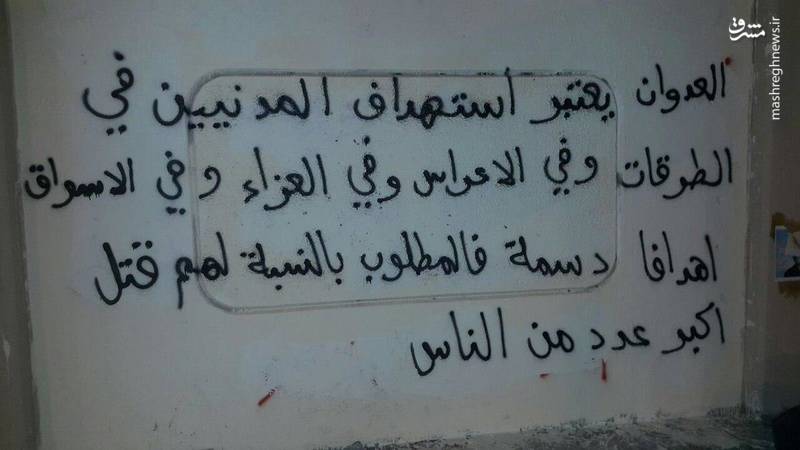 العدوان يعتبر أستهداف المدنييين في
الطرقات وفي الاعراس وفي العزاء وفي الاسواق
اهدافا دسمة فالمطلوب بالنسبة لهم قتل
اكبر عدد من الناس
مشرق
mashreghnews.ir